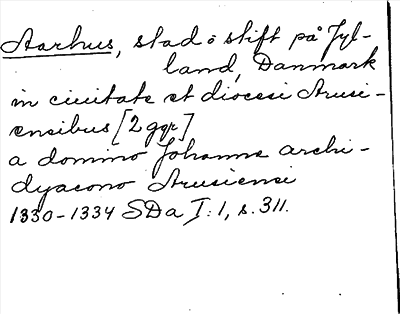 Aarhus, stad o stift på Jyl-
land, Danmark
in ciuitate et diocesi Arusi-
ensibus [2 ggr]
a domino Johanne archi-
dyacono Arusiensi
1330-1334 SDa I:1, s. 311.